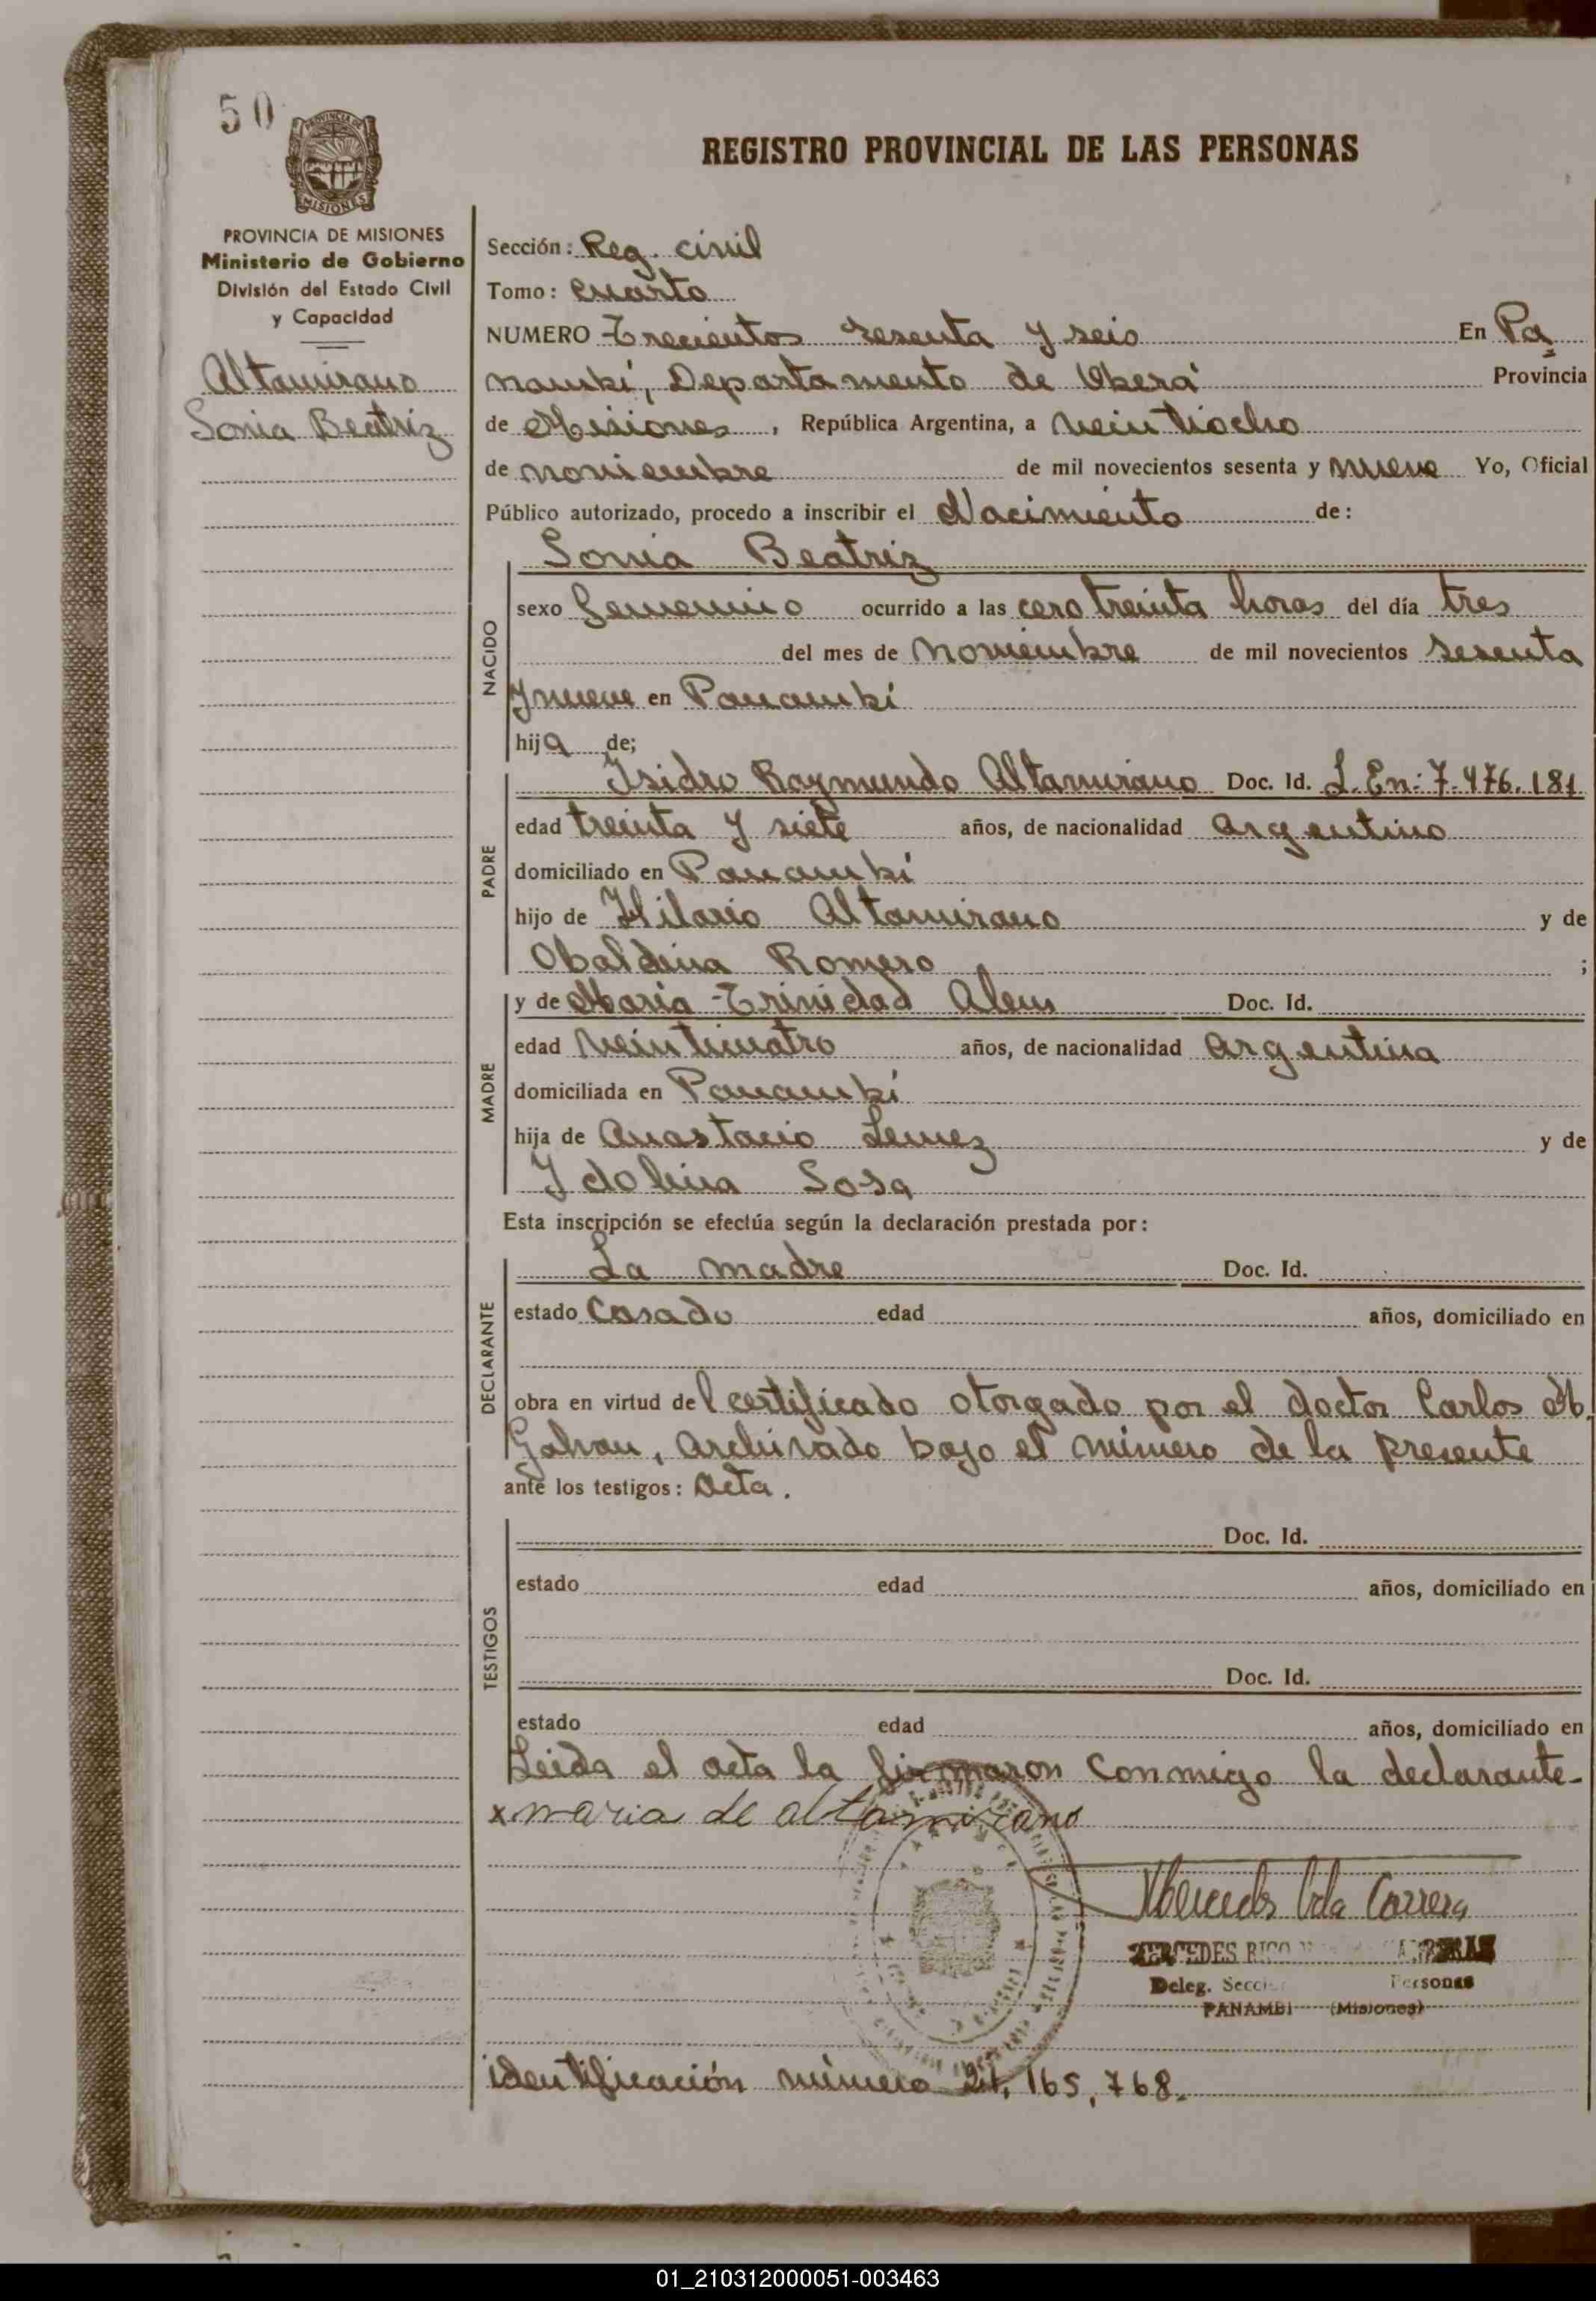 50
PROVINCIA DE MISIONES
Ministerio de Gobierno
División del Estado Civil
y Capacidad
Altamirano
Sonia Beatriz
REGISTRO PROVINCIAL DE LAS PERSONAS
Sección: Reg. civil
Tomo: Cuarto
NUMERO Trecientos sesenta y seis En Pa=
nambí, Departamento de Oberá Provincia
de Misiones, República Argentina, a veintiocho
de noviembre de mil novecientos sesenta y nueve Yo, Oficial
Público autorizado, procedo a inscribir el Nacimiento de:
Sonia Beatriz
NACIDO
sexo femenino ocurrido a las cero treinta horas del día tres
del mes de noviembre de mil novecientos sesenta
y nueve en Panambí
hija de;
PADRE
Isidro Raymundo Altamirano Doc. Id. L. En: 7.476.181
edad treinta y siete años, de nacionalidad argentino
domiciliado en Panambí
hijo de Hilario Altamirano y de
Obaldina Romero ;
MADRE
y de María Trinidad Doc. Id.
edad veinticuatro años, de nacionalidad argentina
domiciliada en Panambí
hija de Anastacio y de
Idolina Sosa
Esta inscripción se efectúa según la declaración prestada por:
DECLARANTE
La madre Doc. Id.
estado Casado edad años, domiciliado en
obra en virtud del certificado otorgado por el doctor Carlos M.
Galvan, archivado bajo el número de la presente
ante los testigos: acta.
TESTIGOS
Doc. Id.
estado edad años, domiciliado en
Doc. Id.
estado edad años, domiciliado en
Leida el acta la firmaron conmigo la declarante-
x maria de altamirano
Mercedes Vda Carrera
MERCEDES RICO
Deleg. Secc. Personas
PANAMBI (Misiones)
identificación número 21,165,768.
01_210312000051-003463